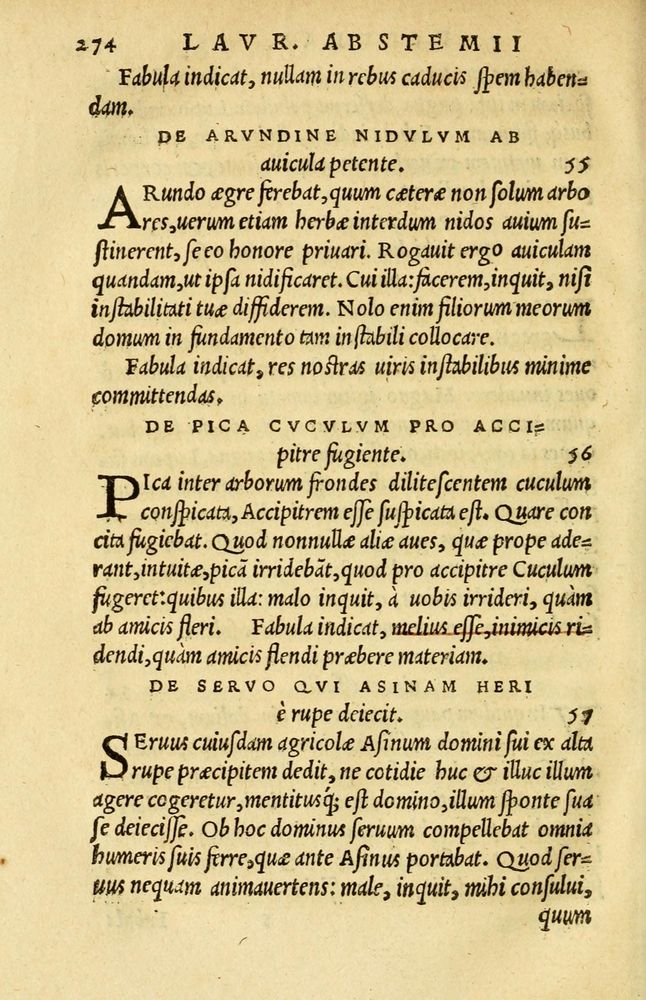 274 LAVR. ABSTEMII
Fabula indicat, nullam in rebus caducis ſpem haben=
dam.
DE ARVNDINE NIDVLVM AB
auicula petente. 55
ARundo ægre ferebat, quum cæteræ non ſolum arbo
res, uerum etiam herbæ interdum nidos auium ſu=
ſtinerent, ſe eo honore priuari. Rogauit ergo auiculam
quandam, ut ipſa nidificaret. Cui illa: facerem, inquit, niſi
inſtabilitati tuæ diffiderem. Nolo enim filiorum meorum
domum in fundamento tam inſtabili collocare.
Fabula indicat, res noſtras uiris inſtabilibus minime
committendas.
DE PICA CVCVLVM PRO ACCI=
pitre fugiente. 56
PIca inter arborum frondes diliteſcentem cuculum
conſpicata, Accipitrem eſſe ſuſpicata eſt. Quare con
cita fugiebat. Quod nonnullæ aliæ aues, quæ prope ade=
rant, intuitæ, picā irridebāt, quod pro accipitre Cuculum
fugeret: quibus illa: malo inquit, à uobis irrideri, quàm
ab amicis fleri. Fabula indicat, melius eſſe, inimicis ri=
dendi, quàm amicis flendi præbere materiam.
DE SERVO QVI ASINAM HERI
è rupe deiecit. 57
SEruus cuiuſdam agricolæ Aſinum domini ſui ex alta
rupe præcipitem dedit, ne cotidie huc & illuc illum
agere cogeretur, mentitusq́; eſt domino, illum ſponte ſua
ſe deieciſſe. Ob hoc dominus ſeruum compellebat omnia
humeris ſuis ferre, quæ ante Aſinus portabat. Quod ſer=
uus nequam animauertens: male, inquit, mihi conſului,
quum